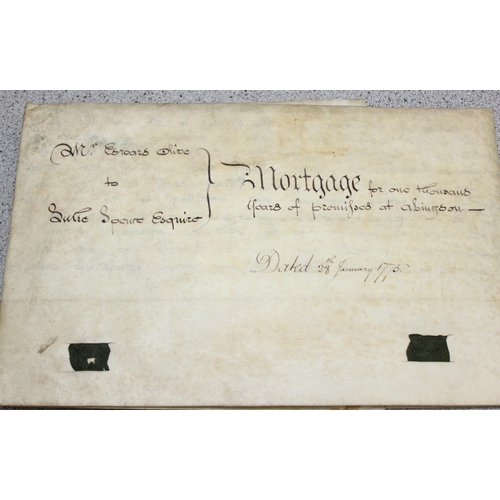 Mr Edward Olive
to
Spence Esquire
Mortgage for one thousand
Years of premisses at Abingdon —
Dated 28th January 1775